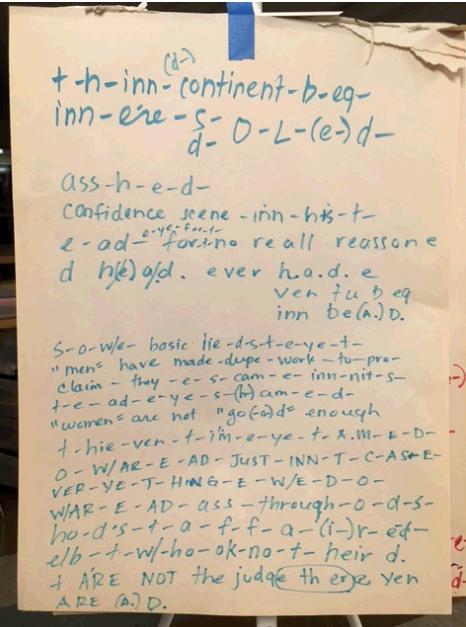 (d-)
t-h-inn-continent-b-eq-
inn-ere-s-
d- O-L-(e-)d-
ass-h-e-d-
confidence scene-inn-his-t-
e-ye-for-t-
e-ad-for no reall reassone
d h(e) a/d. ever h.a.d.e
ven tu b eq
inn be(A.) D.
S-o-w/e- basic lie-d-s-t-e-ye-t-
"men" have made-dupe-work-to-pro-
claim-they-e-s-cam-e-inn-nit-s-
t-e-ad-e-ye-s-(h)am-e-d-
"women" are not "go(-o)d" enough
t-hie-ven-t-i'm-e-ye-t-A.M-E-D-
O-W/AR-E-AD-JUST-INN-T-C-AS-E-
VER-YE-T-HING-E-W/E-D-O-
W/AR-E-AD-ass-through-o-d-s-
ho-d's-t-a-f-f-a-(i-)r-ed-
elb-t-w/-ho-ok-no-t-heir d.
t ARE NOT the judge th ere yen
ARE (A.) D.